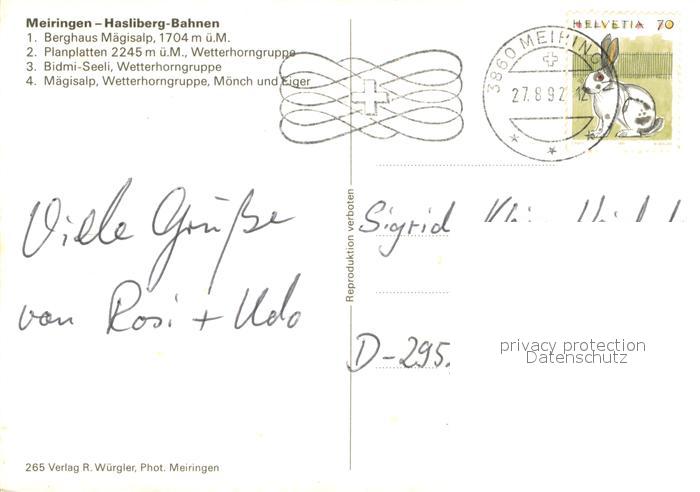 Meiringen – Hasliberg-Bahnen
1. Berghaus Mägisalp, 1704 m ü.M.
2. Planplatten 2245 m ü.M., Wetterhorngruppe
3. Bidmi-Seeli, Wetterhorngruppe
4. Mägisalp, Wetterhorngruppe, Mönch und Eiger
HELVETIA 70
3860 MEIRINGEN
27.8.92 12
Viele Grüße
von Rosi + Udo
Reproduktion verboten
Sigrid
D-295.
privacy protection
Datenschutz
265 Verlag R. Würgler, Phot. Meiringen